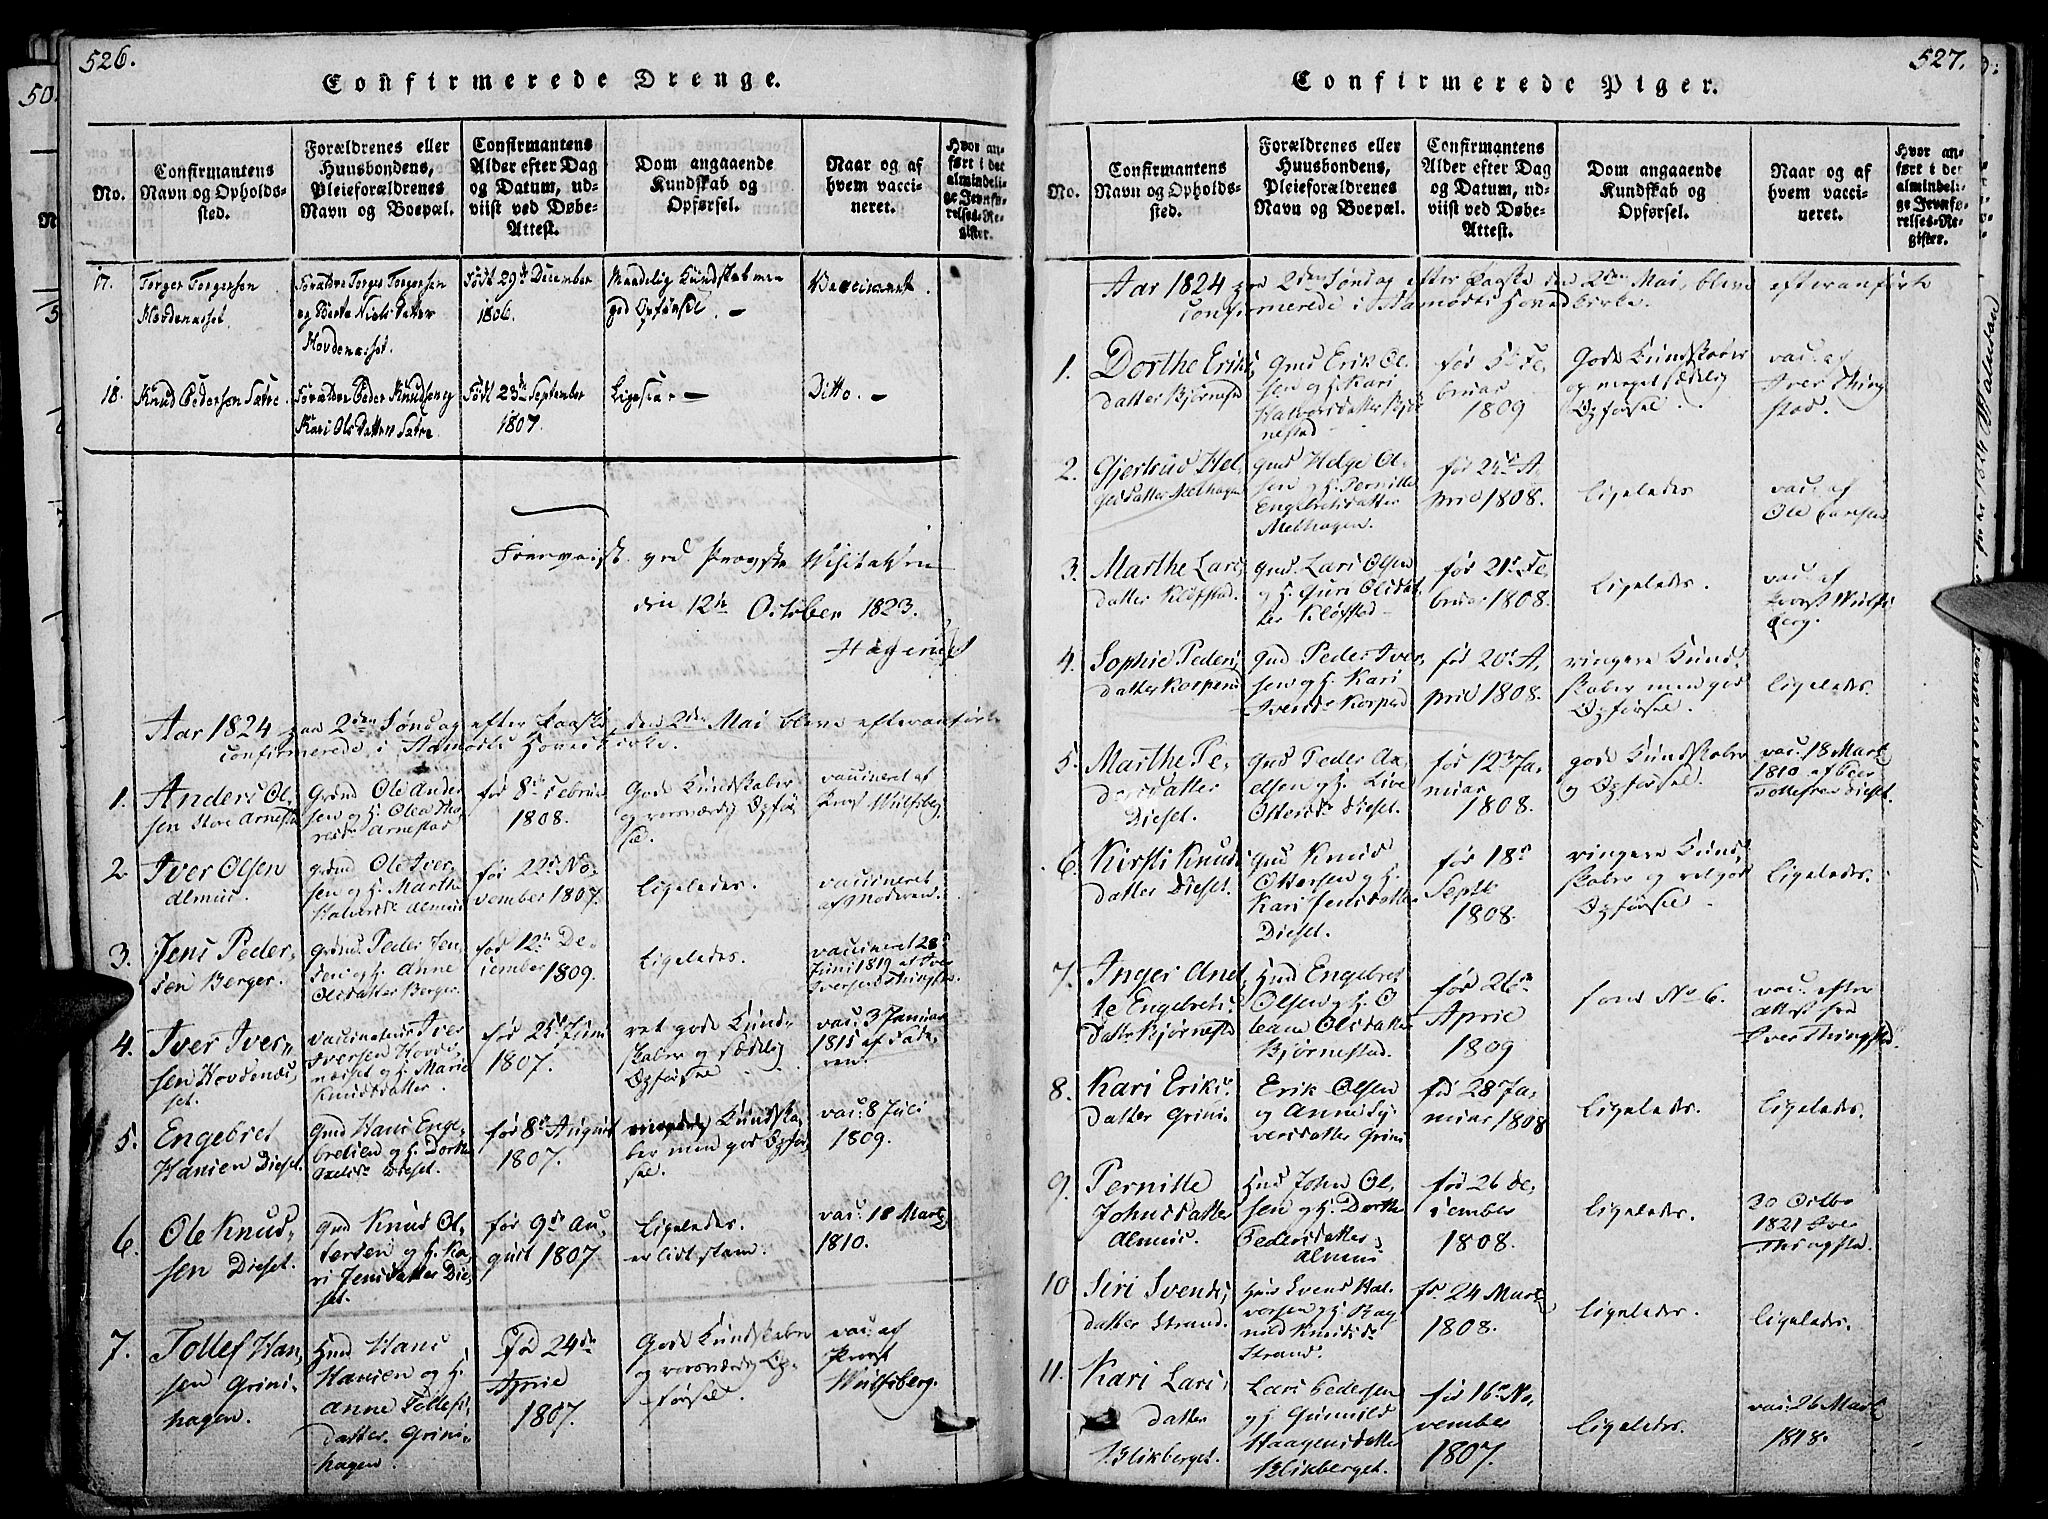 526.
Confirmerede Drenge.
No.
Confirmantens
Navn og Opholds-
sted.
Forældrenes eller
Huusbondens,
Pleieforældrenes
Navn og Boepæl.
Confirmantens
Alder efter Dag
og Datum, ud-
viist ved Døbe-
Attest.
Dom angaaende
Kundskab og
Opførsel.
Naar og af
hvem vacci-
neret.
Hvor an-
ført i det
almindeli-
ge Jevnfø-
relses-Re-
gister.
17.
Torger Torgersen
Hovdenæsset.
Forældre Torger Torgersen
og Berte Niels Datter
Hovdenæsset.
Født 29de December
1806.
Maadelig Kundskab men
god Opførsel. –
Vaccineret
18.
Knud Pedersen Sætre.
Forældre Peder Knudsen og
Kari Ols Datter Sætre.
Født 23de September
1807.
Ligesaa. –
Ditto. –
Foreviist ved Provste Visitatsen
den 12te October 1823.
Aar 1824 paa 2den Søndag efter Paaske, den 2den Mai bleve efteranførte
confirmerede i Aamodts Hovedkirke.
1.
Anders Ol-
sen Store Arnestad
Grmd Ole Ander
sen og H. Olea Tho-
resdr Arnestad
fød 8de Februar
1808.
Gode Kundskaber
og roesværdig Opfør-
sel.
vaccineret af
Provst Wulfsberg
2
Iver Olsen
Alme.
grmd Ole Iver-
sen og H. Marthe
Halvorsdr
fød 22de No-
vember 1807.
ligeledes.
vaccineret
af Moderen.
3.
Jens Peder-
sen Berger.
grmd. Peder Jen-
sen og H. Anne
Olsdatter Berger.
fød 12te De-
cember 1809.
ligeledes.
vaccineret 28de
Juni 1819 af Iver
Iversen Thingstad.
4.
Iver Iver-
sen Hovdenæs-
set.
Iver
Iversen Hovde-
næsset og H. Marie
Knudsdatter.
fød 25de Juni
1807.
ret gode Kund-
skaber og sædelig
Opførsel
vac: 3 Januar
1815 af Fade-
ren.
5.
Engebret
Hansen Dieset.
Gmd Hans Enge-
bretsen og H. Dorthe
Axelsdr Dieset.
fød 8de August
1807.
Kundska-
ber men god Opfør-
sel.
vac: 8 Juli
1809.
6.
Ole Knud-
sen Dieset.
Gmd Knud Ot-
tersen og H. Ka-
ri Jensdatter Die-
set.
fød 9de Au-
gust 1807.
ligeledes.
vac: 18 Marts
1810.
7.
Tollef Han-
sen Grini-
hagen.
Hmd Hans
Hansen og H.
Anne Tollefs-
datter. Grini-
hagen.
fød 24de
April
1807.
Gode Kundskaber
og roesværdig Op-
førsel.
vac: af
Provst
Wulfsberg.
527.
Confirmerede Piger.
No.
Confirmantens
Navn og Opholds-
sted.
Forældrenes eller
Huusbondens,
Pleieforældrenes
Navn og Boepæl.
Confirmantens
Alder efter Dag
og Datum, ud-
viist ved Døbe-
Attest.
Dom angaaende
Kundskab og
Opførsel.
Naar og af
hvem vacci-
neret.
Hvor an-
ført i det
almindeli-
ge Jevnfø-
relses-Re-
gister.
Aar 1824 paa 2den Søndag efter Paaske den 2den Mai, bleve efteranførte
confirmerede i Aamodts Hovedkirke.
1.
Dorthe Eriks-
datter Bjørnestad
Gmd Erik Ol-
sen og H. Kari
Halvorsdatter Bjør-
nestad
fød 5te Fe-
bruar
1809
Gode Kundskaber
og meget sædelig
Opførsel.
vac: af
Iver Thing-
stad.
2.
Gjertrud Hel-
gesdatter Melhagen
Gmd Helge Ol-
sen og H. Pernille
Engebretsdatter
Melhagen.
fød 25de A-
pril 1808.
ligeledes
vac: af
Ole
3.
Marthe Lars-
datter Kløfstad.
Gmd. Lars Olsen
og H. Guri Olsdat-
ter Kløfstad
fød 21de Fe-
bruar 1808.
ligeledes.
vac: af
Provst Wulfs-
berg.
4.
Sophie Peders-
datter Korpend
Gmd Peder Iver-
sen og H. Kari
fød 20de A-
pril 1808.
ringere Kund-
skaber men god
Opførsel.
ligeledes.
5.
Marthe Pe-
dersdatter
Dieset.
Gmd Peder Ax-
elsen og H. Live
Ottersdr Dieset.
fød 12 Ja-
nuar
1808.
gode Kundskaber
og Opførsel.
vac: 18 Marts
1810 af Peer
Tollefsen Dieset.
6.
Kirsti Knuds-
datter Dieset.
Gmd Knud
Ottersen og H.
Kari Jensdatter
Dieset.
fød 18de
Septbr
1808.
ringere Kund-
skaber og velgod
Opførsel.
ligeledes.
7.
Inger Anet-
te Engebrets-
datter Bjørnestad
Hmd Engebret
Olsen og H. O-
leane Olsdatter
Bjørnestad.
fød 26de
April
1809
som No 6.
vac: efter
Attest fra
Iver Thingstad.
8.
Kari Eriks-
datter Grini.
Erik Olsen
og Anne Sy-
versdatter Grini
fød 28 Ja-
nuar 1808
ligeledes.
ligeledes.
9.
Pernille
Johnsdatter
Alme.
Hmd John Ol-
sen og H. Dorthe
Pedersdatter
fød 26 De-
cember
1808.
ligeledes.
20 Octbr
1821 Iver
Thingstad.
10
Siri Svends-
datter Strand.
Svend Hal-
vorsen og H. Rag-
nild Knudsdr
Strand.
fød 24 Marts
1808.
ligeledes.
ligeledes.
11.
Kari Lars-
datter
Blikberget.
Lars Pedersen
og H. Gunnild
Haagensdatter
Blikberget.
fød 16de No-
vember
1807.
ligeledes.
vac: 26 Marts
1818.